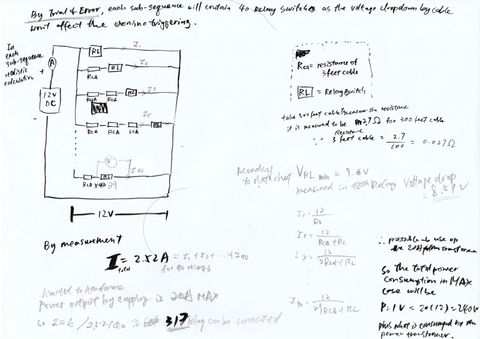 By Trial & Error, each sub-sequence will contain 40 relay switches as the voltage dropdown by cable
wont affect the domino triggering.
In
each
sub-sequence
realistic
calculation
A
12V
DC
RL
I1
RCA
RL
I2
RCA
RCA
RL
I3
RCA
RCA
RCA
RL
I4
V
RCA x 39
RL
I40
12V
RCA = resistance of
3 feet cable
RL = Relay Switch
take 300 feet cable & measure the resistance
it is measured to be 2.7Ω for 300 feet cable
∴ Resistance
3 feet cable = 2.7/100 = 0.027Ω
According
to datasheet VRL min = 9.6V
measured in 40th Relay Voltage drop
= 8.57V
I1 = 12/RL
I2 = 12/RCA+RL
I3 = 12/2RCA+RL
By measurement
I total = 2.52A = I1 + I2 + ... I40
for 40 relays
limited to hardware
Power output by supply is 20A MAX
317 relay can be connected
∴ possible to use up
So the total power
consumption in MAX
case will be
P = IV = 20(12) = 240W
plus what is consumed by the
power transformer.